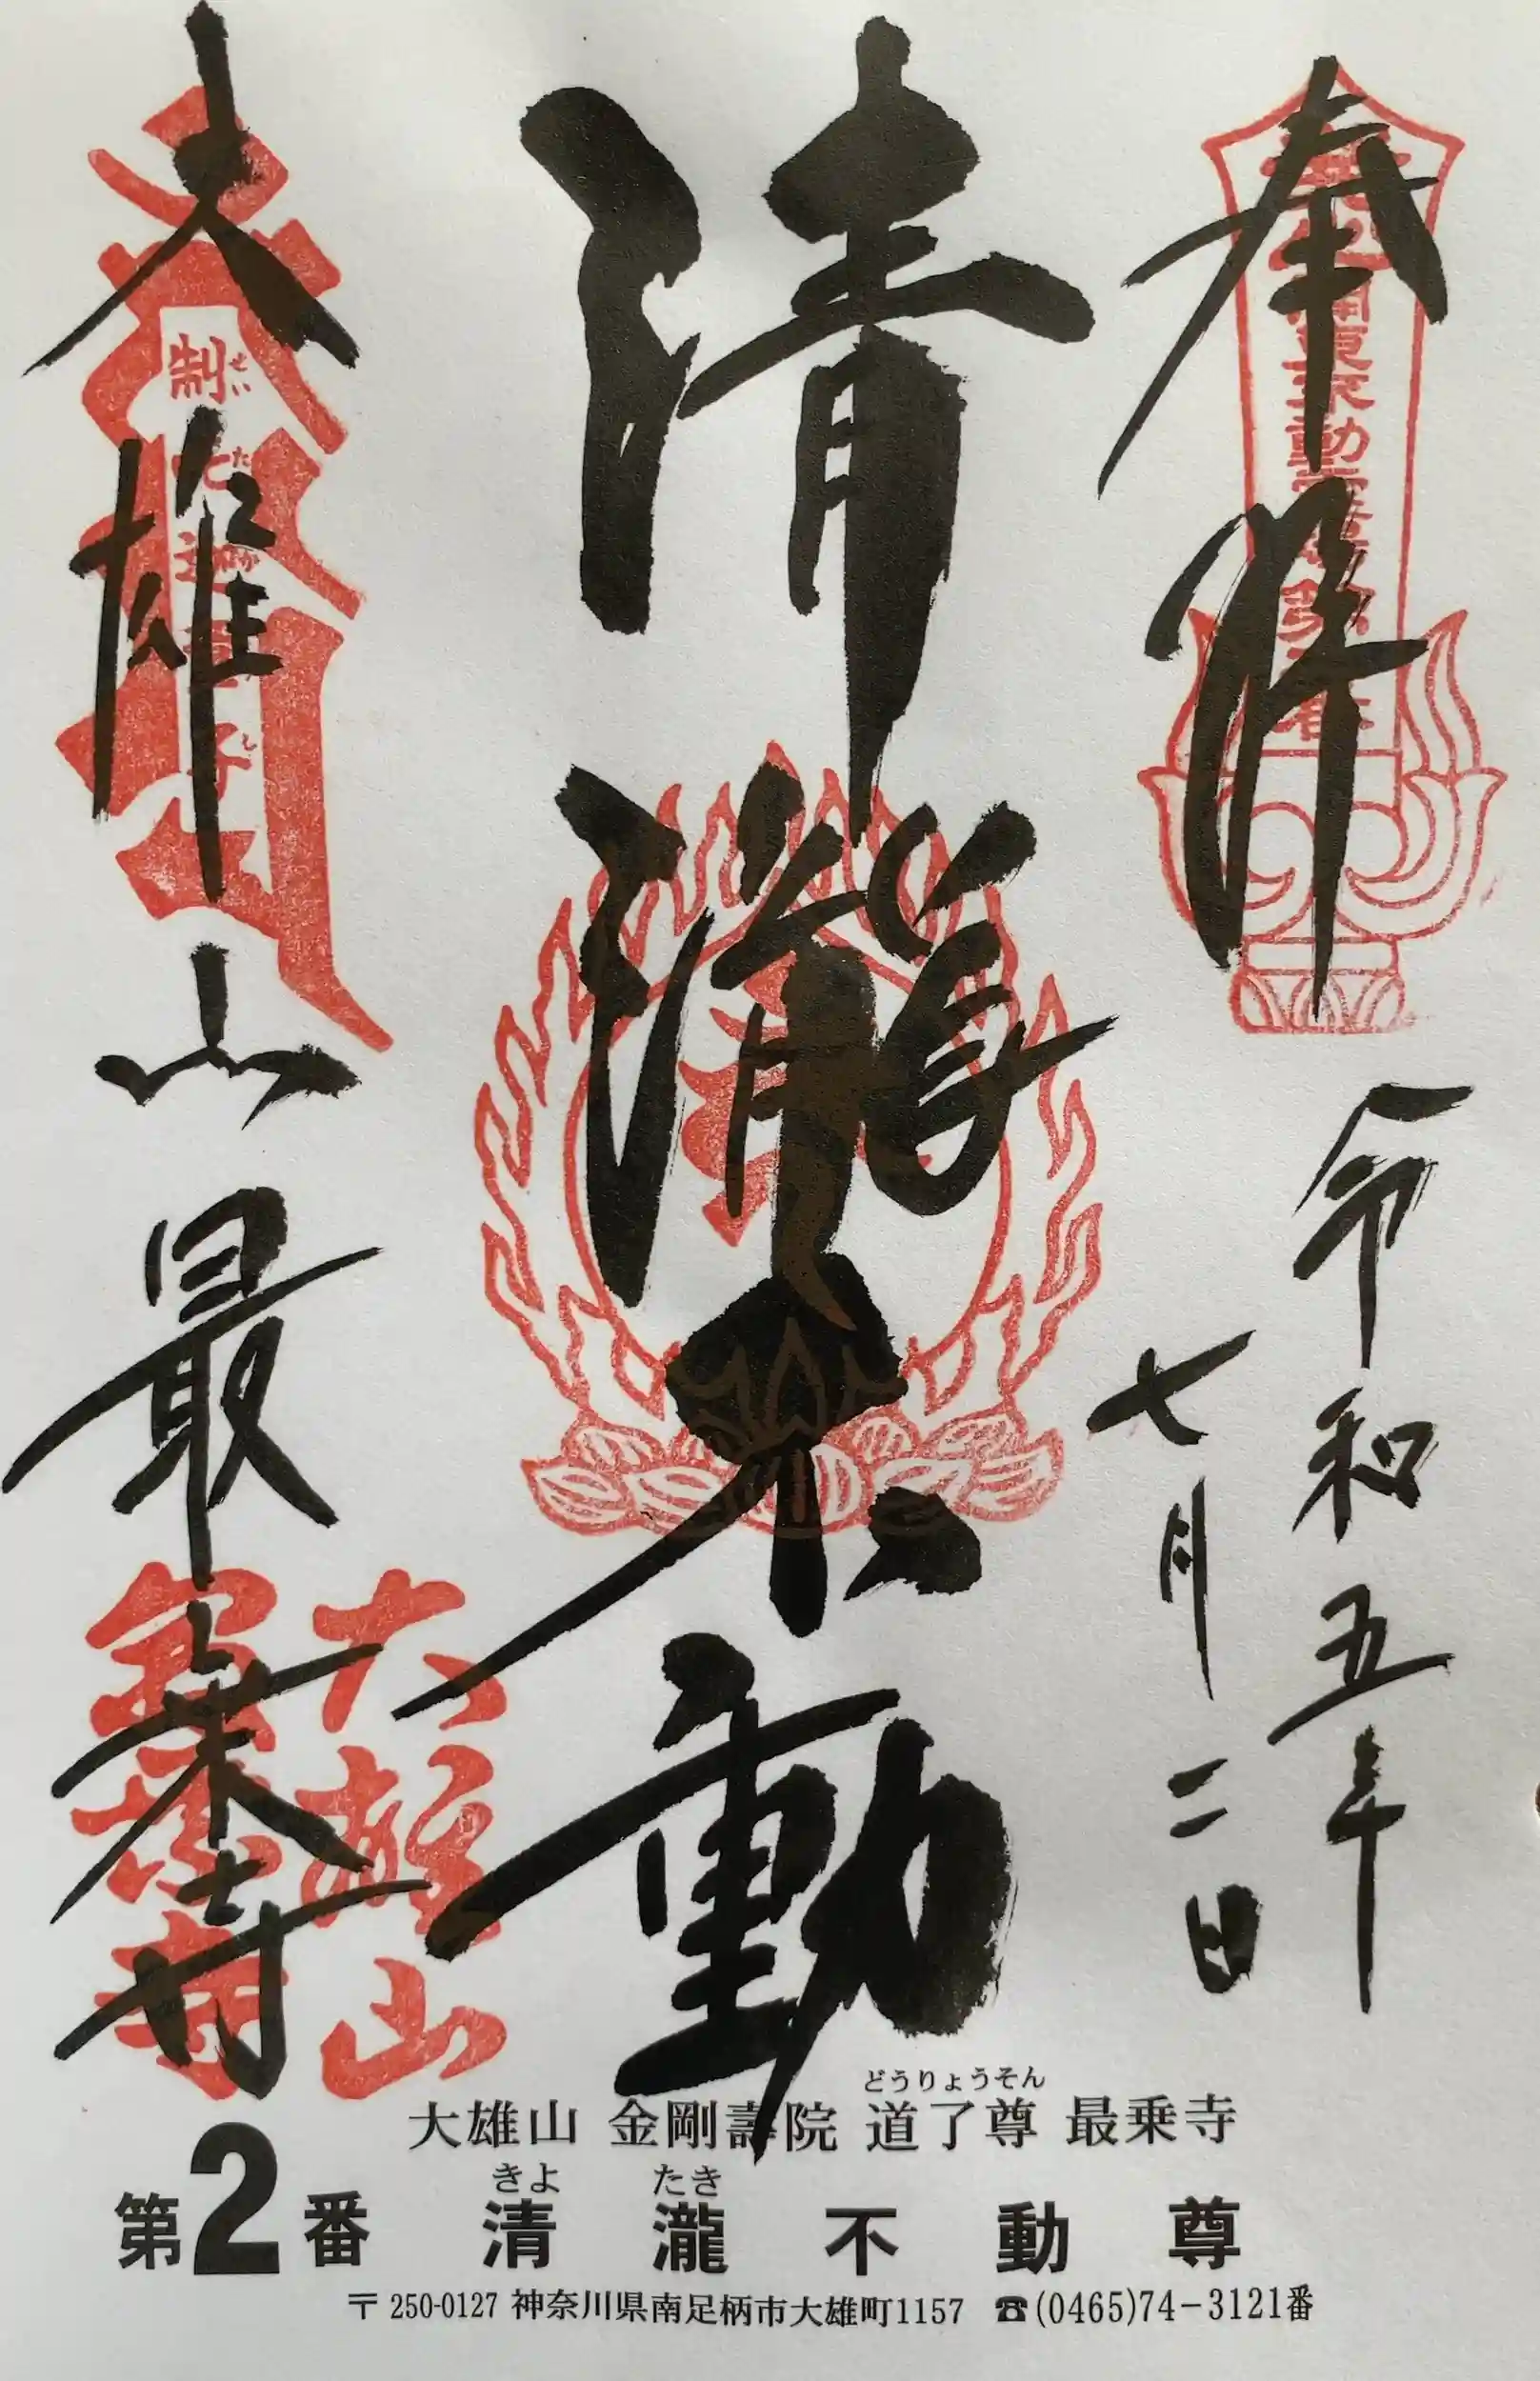 奉拝
令和五年
七月二日
清瀧不動
大雄山最乗寺
制せい
た
大雄山
どうりょうそん
大雄山 金剛壽院 道了尊 最乗寺
きよ たき
第2番 清瀧不動尊
〒250-0127 神奈川県南足柄市大雄町1157 ☎(0465)74-3121番